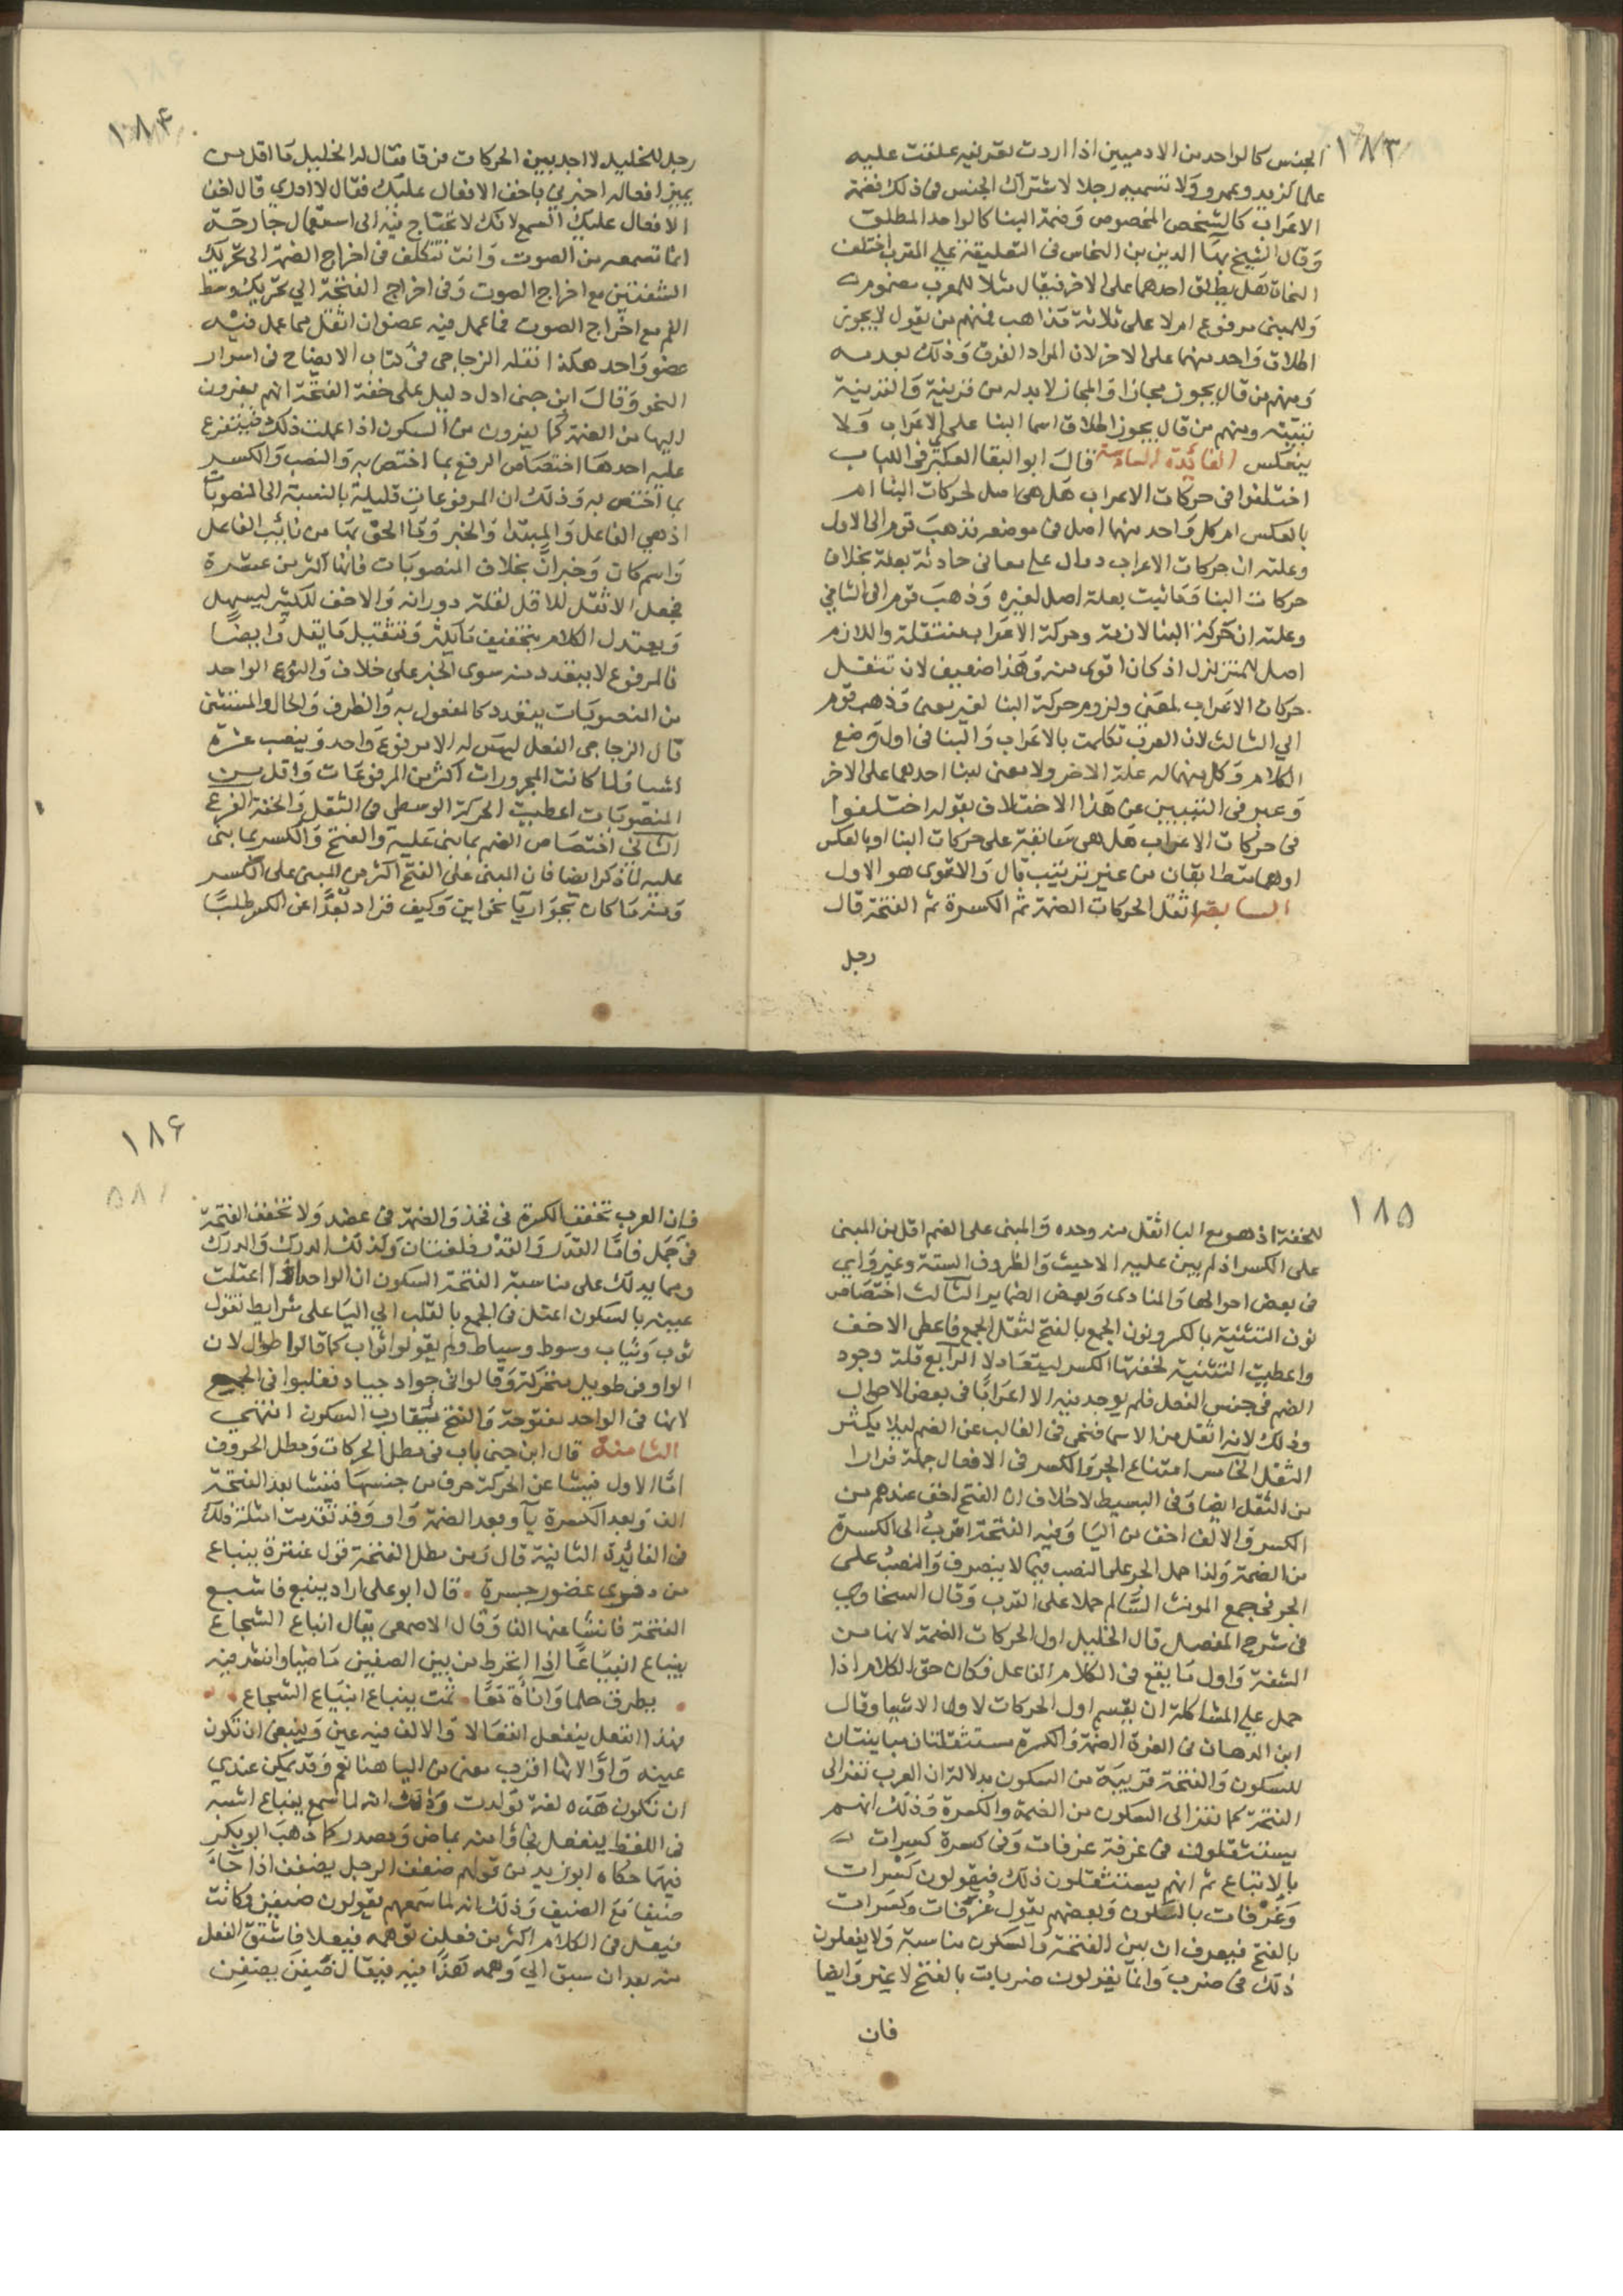 ١٨٣
الجنس كالواحد من الادميين اذا اردت تعريفه علقت عليه
علما كزيد وعمرو ولا تسميه رجلا لاشتراك الجنس في ذلك فضمة
الاعراب كالشخص المخصوص وضمة البنا كالواحد المطلق
وقال الشيخ بها الدين بن النحاس في التعليقة على المقرب اختلف
النحاة هل يطلق احدهما على الاخر فيقال مثلا للمعرب مضموم
وللمبنى مرفوع ام لا على ثلاثة مذاهب فمنهم من يقول لا يجوز
اطلاق واحد منهما على الاخر لان المراد الفرق وذلك بعدمه
ومنهم من قال يجوز مجازا والمجاز لا بد له من قرينة والقرينة
تبينه ومنهم من قال يجوز اطلاق اسما البنا على الاعراب ولا
ينعكس الفائدة السادسة قال ابو البقا العكبري في اللباب
اختلفوا في حركات الاعراب هل هي اصل لحركات البنا ام
بالعكس ام كل واحد منهما اصل في موضعه فذهب قوم الى الاول
وعلته ان حركات الاعراب دوال على معانى حادثة بعلة بخلاف
حركات البنا وما ثبت بعلة اصل لغيره وذهب قوم الى الثاني
وعلته ان حركة البنا لازمة وحركة الاعراب منتقلة واللازم
اصل للمتزلزل اذ كان اقوى منه وهذا ضعيف لان تنقل
حركات الاعراب لمعنى ولزوم حركة البنا لغير معنى وذهب قوم
الي الثالث لان العرب تكلمت بالاعراب والبنا فى اول وضع
الكلام وكل منهما له علة الاخر ولا معنى لبنا احدهما على الاخر
وعبر في التبيين عن هذا الاختلاف بقوله اختلفوا
في حركات الاعراب هل هي سابقة على حركات البنا او بالعكس
او هما متطابقان من غير ترتيب قال والاقوى هو الاول
السابعة اثقل الحركات الضمة ثم الكسرة ثم الفتحة قال
رجل
١٨٤
رجل للخليل لا اجد بين الحركات فرقا فقال له الخليل ما اقل من
يميز افعاله اخبرني باخف الافعال عليك فقال لا ادري قال اخف
الافعال عليك السمع لانك لا تحتاج فيه الى استعمال جارحة
انما تسمعه من الصوت وانت تتكلف فى اخراج الضمة الى تحريك
الشفتين مع اخراج الصوت وفى اخراج الفتحة الي تحريك وسط
الفم مع اخراج الصوت فما عمل فيه عضوان اثقل مما عمل فيه
عضو واحد هكذا نقله الزجاجي في كتاب الايضاح في اسرار
النحو وقال ابن جنى ادل دليل على خفة الفتحة انهم يفرون
اليها من الضمة كما يفرون من السكون اذا علمت ذلك فيتفرع
عليه احدها اختصاص الرفع بما اختص به والنصب والكسر
بما اختص به وذلك ان المرفوعات قليلة بالنسبة الى المنصوبات
اذ هي الفاعل والمبتدا والخبر وما الحق بها من نائب الفاعل
واسم كان وخبر ان بخلاف المنصوبات فانها اكثر من عشرة
فجعل الاثقل للاقل لقلة دورانه والاخف للكثير ليسهل
ويعتدل الكلام بتخفيف ما يكثر وتثقيل ما يقل وايضا
فالمرفوع لا يتعدد منه سوى الخبر على خلاف والنوع الواحد
من المنصوبات يتعدد كالمفعول به والظرف والحال والمستثنى
قال الزجاجي الفعل ليس له الا مرفوع واحد وينصب عشرة
اشيا ولما كانت المجرورات اكثر من المرفوعات واقل من
المنصوبات اعطيت الحركة الوسطى فى الثقل والخفة الفرع
الثاني اختصاص الضم بما بنى عليه والفتح والكسر بما بنى
عليه لما ذكر ايضا فان المبنى على الفتح اكثر من المبنى على الكسر
وكيف فرارا بعدا عن الكسر طلبا
١٨٥
للخفة اذ هو مع اليا اثقل منه وحده والمبنى على الضم اقل من المبنى
على الكسر اذ لم يبن عليه الا حيث والظروف الستة وغير واي
فى بعض احوالها والمنادى وبعض الضماير الثالث اختصاص
نون التثنية بالكسر ونون الجمع بالفتح لثقل الجمع فاعطى الاخف
واعطيت التثنية لخفتها الكسر ليتعادلا الرابع قلة وجود
الضم في جنس الفعل فلم يوجد فيه الا اعرابا فى بعض الاحوال
وذلك لانه اثقل من الاسما فنحى فى الغالب عن الضم ليلا يكثر
الثقل الخامس امتناع الجر والكسر فى الافعال جملة فرارا
من الثقل ايضا وفى البسيط لا خلاف ان الفتح اخف عندهم من
الكسر والالف اخف من اليا وفيه الفتحة اقرب الى الكسرة
من الضمة ولذا حمل الجر على النصب فيما لا ينصرف والنصب على
الجر في جمع المونث السالم حملا على القرب وقال السخاوي
في شرح المفصل قال الخليل اول الحركات الضمة لانها من
الشفة واول ما يقع فى الكلام الفاعل فكان حق الكلام اذا
حمل على المشاكلة ان يقسم اول الحركات لاول الاشيا وقال
ابن الدهان فى الغرة الضمة والكسرة مستثقلتان مباينتان
للسكون والفتحة قريبة من السكون بدلالة ان العرب تفر الى
الفتحة كما تفر الى السكون من الضمة والكسرة وذلك انهم
يستثقلون فى غرفة غرفات وفى كسرة كسرات
بالاتباع ثم انهم يستثقلون ذلك فيقولون كسرات
وغرفات بالسكون وبعضهم يقول غرفات وكسرات
بالفتح فيعرف ان بين الفتحة والسكون مناسبة ولا يفعلون
ذلك فى ضرب وانما يقولون ضربات بالفتح لا غير وايضا
فان
١٨٦
فان العرب تخفف الكسرة فى فخذ والضمة فى عضد ولا تخفف الفتحة
فى جمل فاما القدر والقدر فلغتان وكذلك الدرك والدرك
ومما يدلك على مناسبة الفتحة السكون ان الواحد اذا اعتلت
عينه بالسكون اعتل فى الجمع بالقلب الي اليا على شرايط تقول
ثوب وثياب وسوط وسياط ولم يقولوا اثواب كما قالوا طوال لان
الواو فى طويل متحركة وقالوا فى جواد جياد فقلبوا فى الجمع
لانها فى الواحد مفتوحة والفتح يقارب السكون انتهي
الثامنة قال ابن جنى باب فى مطل الحركات ومطل الحروف
اما الاول فينشا عن الحركة حرف من جنسها فينشا بعد الفتحة
الف وبعد الكسرة يآ وبعد الضمة واو وقد تقدمت امثلة ذلك
فى الفائدة الثانية قال ومن مطل الفتحة قول عنترة ينباع
من دفرى غضوب جسرة . قال ابو على اراد ينبع فاشبع
الفتحة فانشا عنها الفا وقال الاصمعى يقال انباع الشجاع
ينباع انبياعا اذا انخرط من بين الصفين ماضيا وانشد فيه
يطرق حلما واناة معا . ثمت ينباع انبياع الشجاع
فهذا انفعل ينفعل انفعالا والالف فيه عين وينبغى ان تكون
عينه واوا لانها اقرب معنى من اليا هنا نعم وقد يمكن عندي
ان تكون هذه لغة تولدت وذلك انه لما سمع ينباع اشبه
فى اللفظ ينفعل فجاوا منه بماض ومصدر كما ذهب ابو بكر
فيما حكاه ابو زيد من قولهم ضفن الرجل يضفن اذا جا
ضيفا مع الضيف وذلك انه لما سمعهم يقولون ضيفن وكانت
فيعل فى الكلام اكثر من فعلن توهمه فيعلا فاشتق الفعل
منه بعد ان سبق الي وهمه هذا فيه فيقال ضفن يضفن